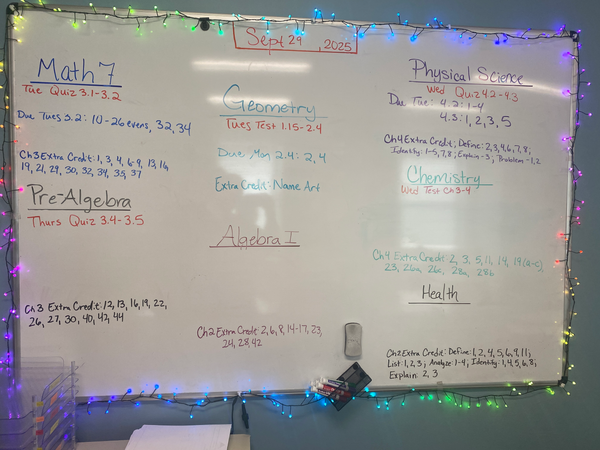 Sept 29, 2025
Math 7
Tue Quiz 3.1-3.2
Due Tues 3.2: 10-26 evens, 32, 34
Ch 3 Extra Credit: 1, 3, 4, 6-9, 13, 16,
19, 21, 29, 30, 32, 34, 35, 37
Pre-Algebra
Thurs Quiz 3.4-3.5
Ch 3 Extra Credit: 12, 13, 16, 19, 22,
26, 27, 30, 40, 42, 44
Geometry
Tues Test 1.15-2.4
Due Mon 2.4: 2, 4
Extra Credit: Name Art
Algebra I
Ch 2 Extra Credit: 2, 6, 8, 14-17, 23,
24, 28, 42
Physical Science
Wed Quiz 4.2-4.3
Due Tue: 4.2: 1-4
4.3: 1, 2, 3, 5
Ch 4 Extra Credit; Define: 2, 3, 4, 6, 7, 8;
Identify: 1-5, 7, 8; Explain-3; Problem-1, 2
Chemistry
Wed Test Ch 3-4
Ch 4 Extra Credit: 2, 3, 5, 11, 14, 19 (a-c),
23, 26a, 26c, 28a, 28b
Health
Ch 2 Extra Credit: Define: 1, 2, 4, 5, 6, 9, 11;
List: 1, 2, 3; Analyze: 1-4; Identify: 1, 4, 5, 6, 8;
Explain: 2, 3